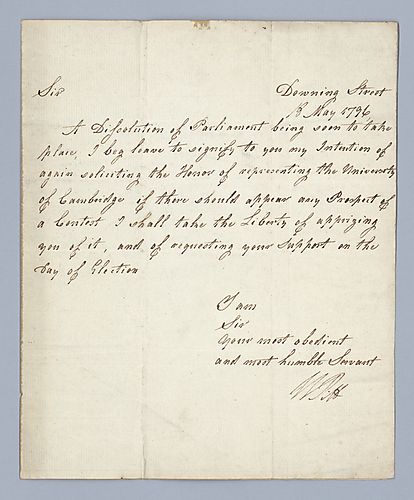 Sir
Downing Street
18 May 1796
A Dissolution of Parliament being soon to take
place, I beg leave to signify to you my Intention of
again soliciting the Honor of representing the University
of Cambridge if there should appear any Prospect of
a Contest I shall take the Liberty of apprizing
you of it, and of requesting your Support on the
Day of Election
I am
Sir
Your most obedient
and most humble Servant
W Pitt